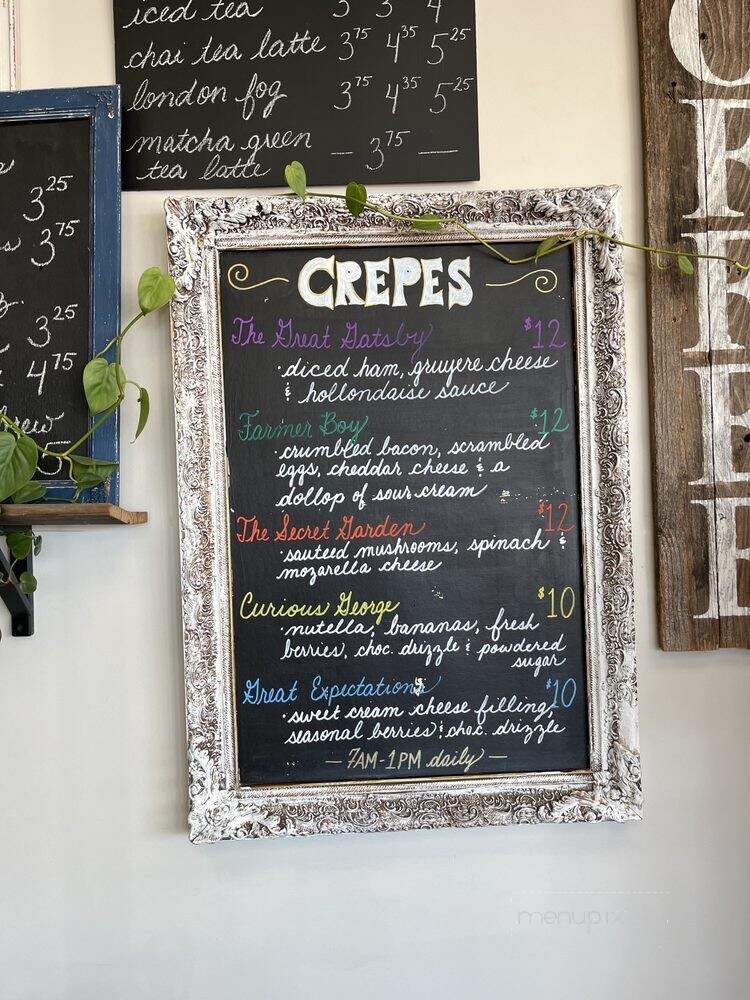 iced tea 3 3 4
chai tea latte 3.75 4.35 5.25
london fog 3.75 4.35 5.25
matcha green
tea latte — 3.75 —
3.25
3.75
3.25
4.75
CREPES
The Great Gatsby $12
·diced ham, gruyere cheese
& hollondaise sauce
Farmer Boy $12
·crumbled bacon, scrambled
eggs, cheddar cheese & a
dollop of sour cream
The Secret Garden $12
·sauteed mushrooms, spinach &
mozarella cheese
Curious George $10
·nutella, bananas, fresh
berries, choc. drizzle & powdered
sugar
Great Expectations $10
·sweet cream cheese filling,
seasonal berries & choc. drizzle
— 7AM-1PM daily —
menupix